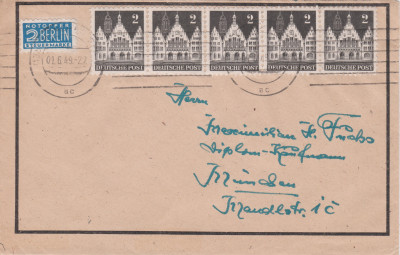 NOTOPFER
2 BERLIN
STEUERMARKE
2 2 2 2 2
DEUTSCHE POST DEUTSCHE POST DEUTSCHE POST DEUTSCHE POST DEUTSCHE POST
Herrn
Maximilian H. Fuchs
Diplom-Kaufmann
München
Mandlstr. 1c